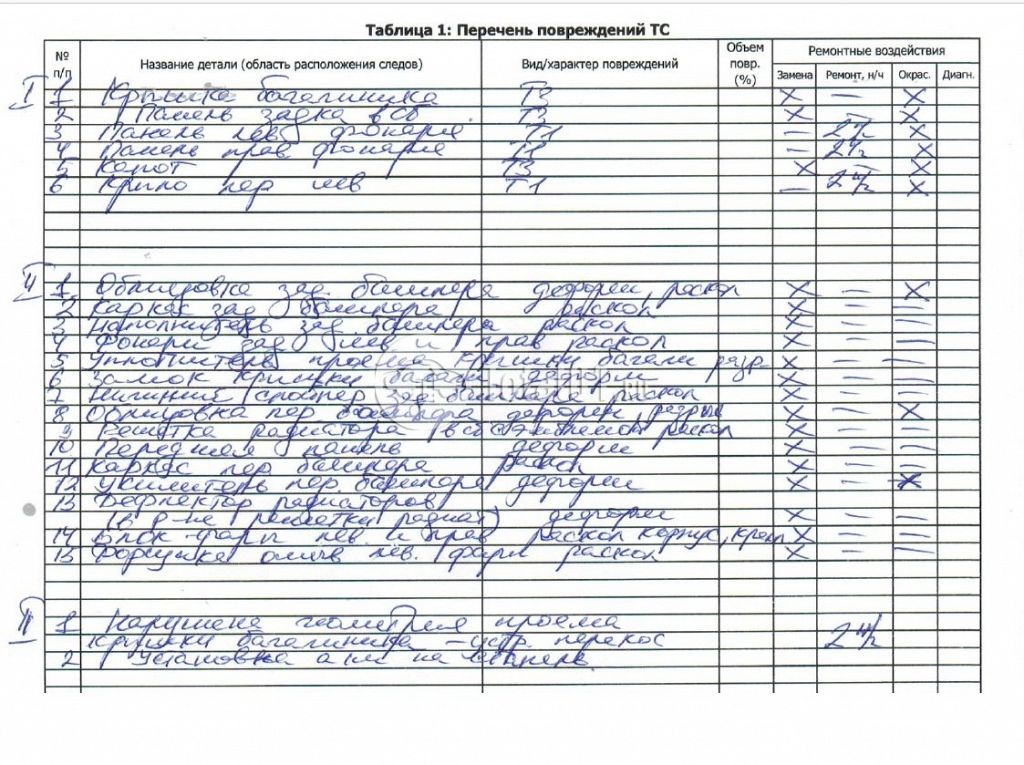 Таблица 1: Перечень повреждений ТС
№ п/п Название детали (область расположения следов) Вид/характер повреждений Объем повр. (%) Ремонтные воздействия
Замена Ремонт, н/ч Окрас. Диагн.
I 1 Крышка багажника Т3 X — X
2 Панель задка в сб Т3 X — X
3 Панель лев фонаря Т1 — 2 н/ч X
4 Панель прав фонаря Т1 — 2 н/ч X
5 Капот Т3 X — X
6 Крыло пер лев Т1 — 2 н/ч X
II 1 Облицовка зад. бампера деформ, раскол X — X
2 Каркас зад бампера раскол X — —
3 Наполнитель зад. бампера раскол X — —
4 Фонари зад лев и прав раскол X — —
5 Уплотнитель проема крышки багажн разр. X — —
6 Замок крышки багажн деформ X — —
7 Нижний спойлер зад бампера раскол X — —
8 Облицовка пер бампера деформ, разрыв X — X
9 Решетка радиатора в сб с эмблемой раскол X — —
10 Передняя панель деформ X — —
11 Каркас пер бампера раскол X — —
12 Усилитель пер. бампера деформ X — X
13 Дефлектор радиаторов
(в р-не решетки радиат) деформ X — —
14 Блок-фары лев. и прав раскол корпус, крепл X — —
15 Форсунка омыв лев. фары раскол X — —
III 1 Нарушена геометрия проема
крышки багажника – устр. перекос 2 н/ч
2 Установка а/м на